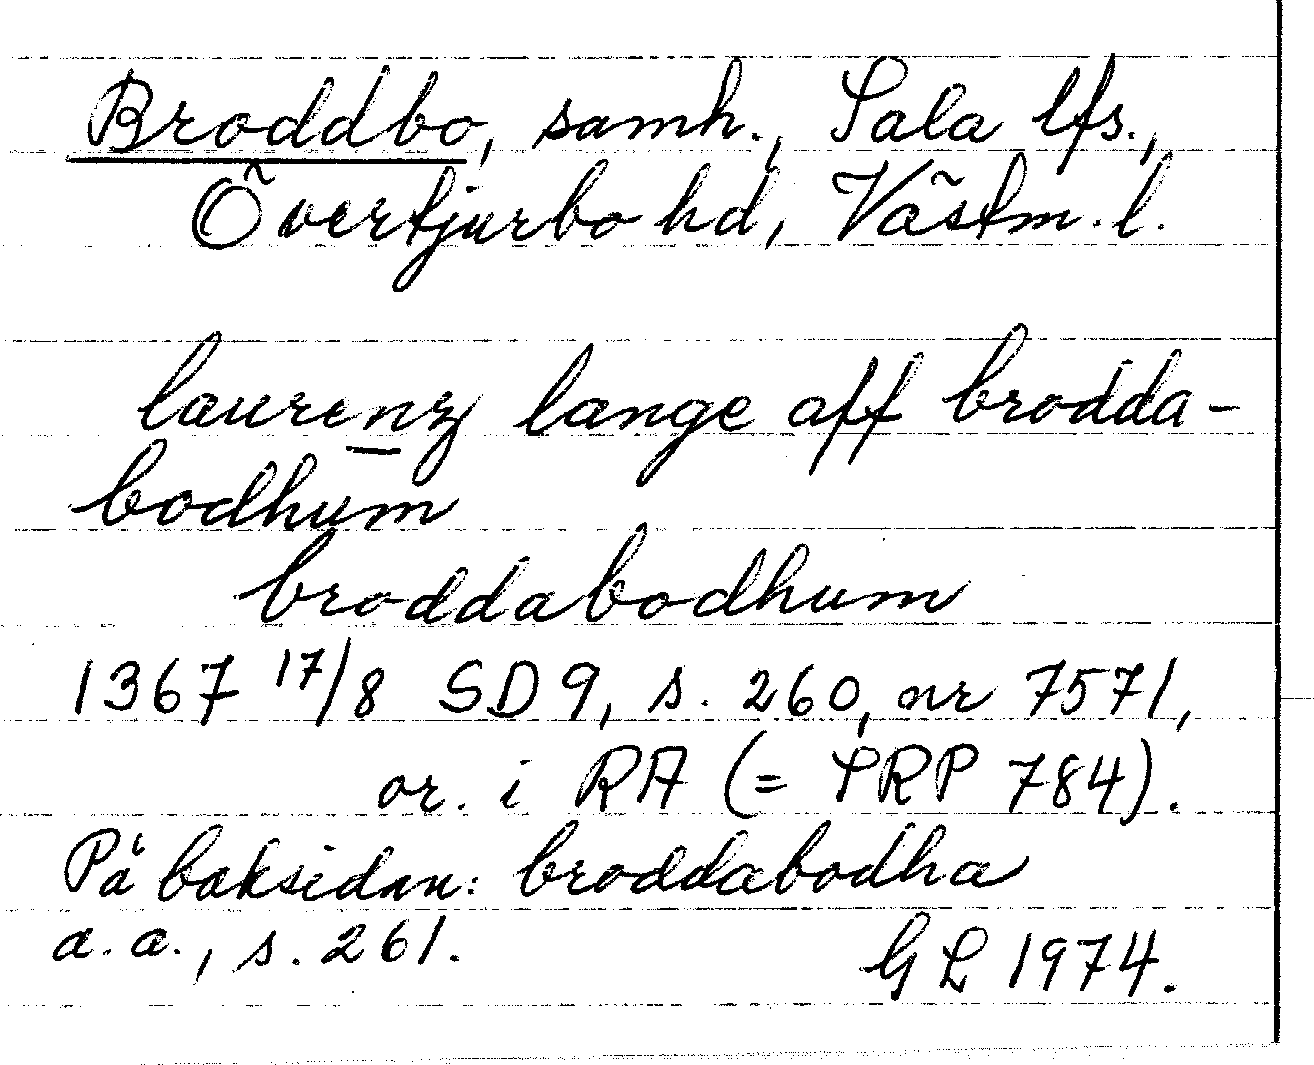 Broddbo, samh., Sala lfs.,
Övertjurbo hd, Västm. l.
laurenz lange aff brodda-
bodhum
broddabodhum
1367 17/8 SD 9, s. 260, nr 7571,
or. i RA (= SRP 784).
På baksidan: broddabodha
a.a., s. 261.
GL 1974.